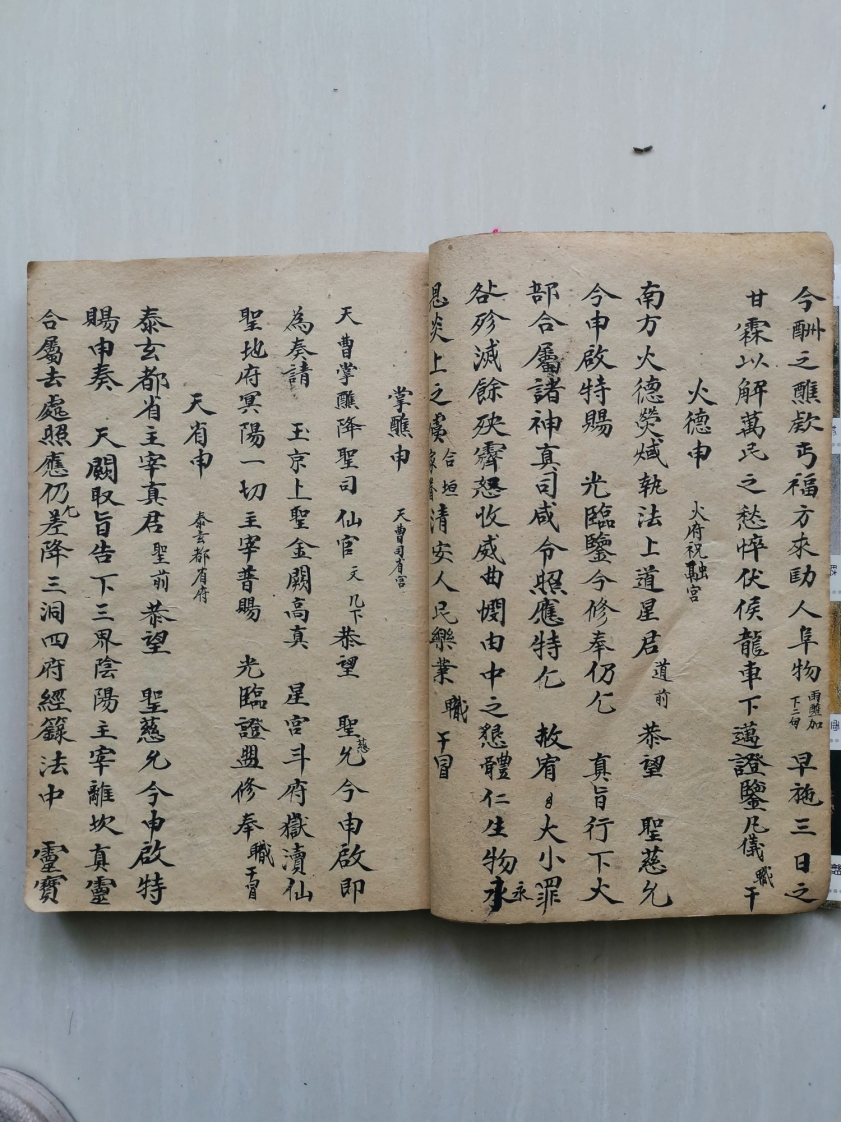 今酬之醮欵丐福方來助人阜物雨醮加下二句早施三日之
甘霖以解萬民之愁悴伏俟龍車下邁證鑒凡儀職干
火德申 火府祝融宮
南方火德熒惑執法上道星君道前恭望 聖慈允
今申啟特賜 光臨鑒今修奉仍乞 真旨行下火
部合屬諸神真司咸令照應特乞 赦宥 大小罪
咎殄滅餘殃霽怒收威曲憫由中之懇體仁生物永
息炎上之虞合垣家眷清安人民樂業 職干冒
掌醮申 天曹司省宮
天曹掌醮降聖司仙官文几下恭望 聖慈允今申啟即
為奏請 玉京上聖金闕高真 星宮斗府嶽瀆仙
聖地府冥陽一切主宰普賜 光臨證盟修奉職干冒
天省申 泰玄都省府
泰玄都省主宰真君聖前恭望 聖慈允今申啟特
賜申奏 天闕取旨告下三界陰陽主宰離坎真靈
合屬去處照應仍乞差降三洞四府經籙法中 靈寶